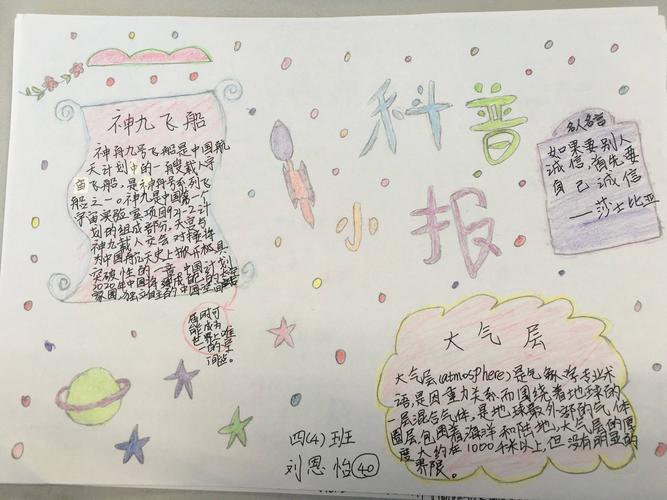 科普
小报
神九飞船
神舟九号飞船是中国航
天计划中的一艘载人宇
宙飞船，是神舟号系列飞
船之一。神九是中国第一个
宇宙实验室项目921-2计
划的组成部分，天宫与
神九载人交会对接将
为中国航天史上掀开极具
突破性的一章。中国计划
2020年中国将建成自己的太空
家园，独立自主的中国空间站
届时可
能成为
世界上唯
一的空
间站。
名人名言
如果要别人
诚信，首先要
自己诚信
——莎士比亚
大气层
大气层(atmosphere)是气象学专业术
语，是因重力关系而围绕着地球的
一层混合气体，是地球最外部的气体
圈层，包围着海洋和陆地，大气层的厚
度大约在1000千米以上，但没有明显的
界限。
四(4)班
刘恩怡 40